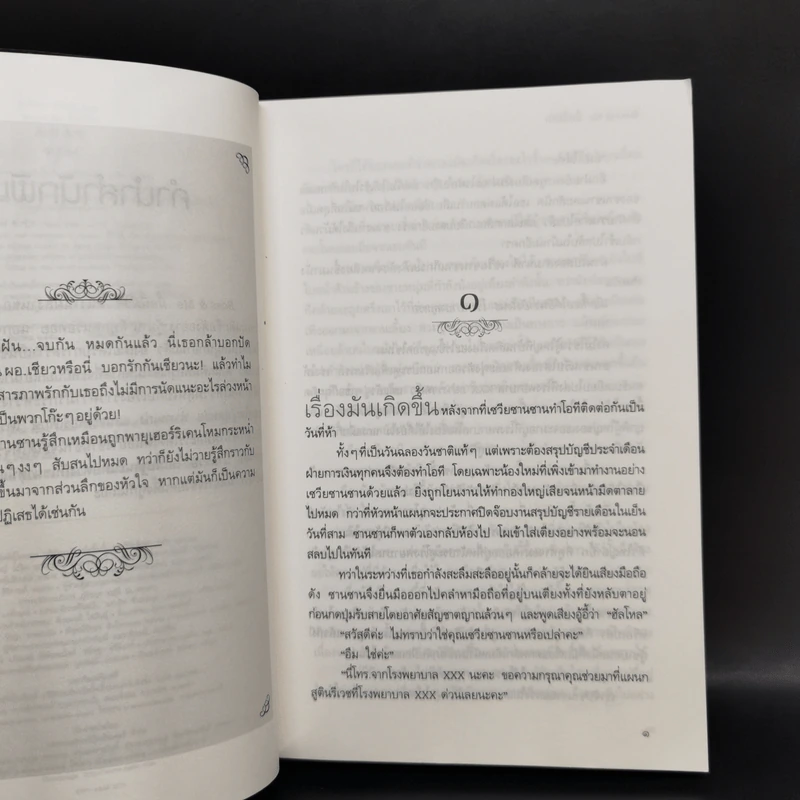 ฝัน...จบกัน หมดกันแล้ว นี่เธอกล้าบอกปัด
ผอ.เชียวหรือนี่ บอกรักกันเชียวนะ! แล้วทำไม
สารภาพรักกับเธอถึงไม่มีการนัดแนะอะไรล่วงหน้า
เป็นพวกโก๊ะๆอยู่ด้วย!
านซานรู้สึกเหมือนถูกพายุเฮอร์ริเคนโหมกระหน่ำ
นๆงงๆ สับสนไปหมด ทว่าก็ยังไม่วายรู้สึกราวกับ
ขึ้นมาจากส่วนลึกของหัวใจ หากแต่มันก็เป็นความ
ปฏิเสธได้เช่นกัน
๑
เรื่องมันเกิดขึ้นหลังจากที่เซวียซานซานทำโอทีติดต่อกันเป็น
วันที่ห้า
ทั้งๆที่เป็นวันฉลองวันชาติแท้ๆ แต่เพราะต้องสรุปบัญชีประจำเดือน
ฝ่ายการเงินทุกคนจึงต้องทำโอที โดยเฉพาะน้องใหม่ที่เพิ่งเข้ามาทำงานอย่าง
เซวียซานซานด้วยแล้ว ยิ่งถูกโยนงานให้ทำกองใหญ่เสียจนหน้ามืดตาลาย
ไปหมด กว่าที่หัวหน้าแผนกจะประกาศปิดจ๊อบงานสรุปบัญชีรายเดือนในเย็น
วันที่สาม ซานซานก็พาตัวเองกลับห้องไป โผเข้าใส่เตียงอย่างพร้อมจะนอน
สลบไปในทันที
ทว่าในระหว่างที่เธอกำลังสะลึมสะลืออยู่นั้นก็คล้ายจะได้ยินเสียงมือถือ
ดัง ซานซานจึงยื่นมือออกไปคลำหามือถือที่อยู่บนเตียงทั้งที่ยังหลับตาอยู่
ก่อนกดปุ่มรับสายโดยอาศัยสัญชาตญาณล้วนๆ และพูดเสียงอู้อี้ว่า "ฮัลโหล"
"สวัสดีค่ะ ไม่ทราบว่าใช่คุณเซวียซานซานหรือเปล่าคะ"
"อืม ใช่ค่ะ"
"นี่โทร.จากโรงพยาบาล XXX นะคะ ขอความกรุณาคุณช่วยมาที่แผนก
สูตินรีเวชที่โรงพยาบาล XXX ด่วนเลยนะคะ"